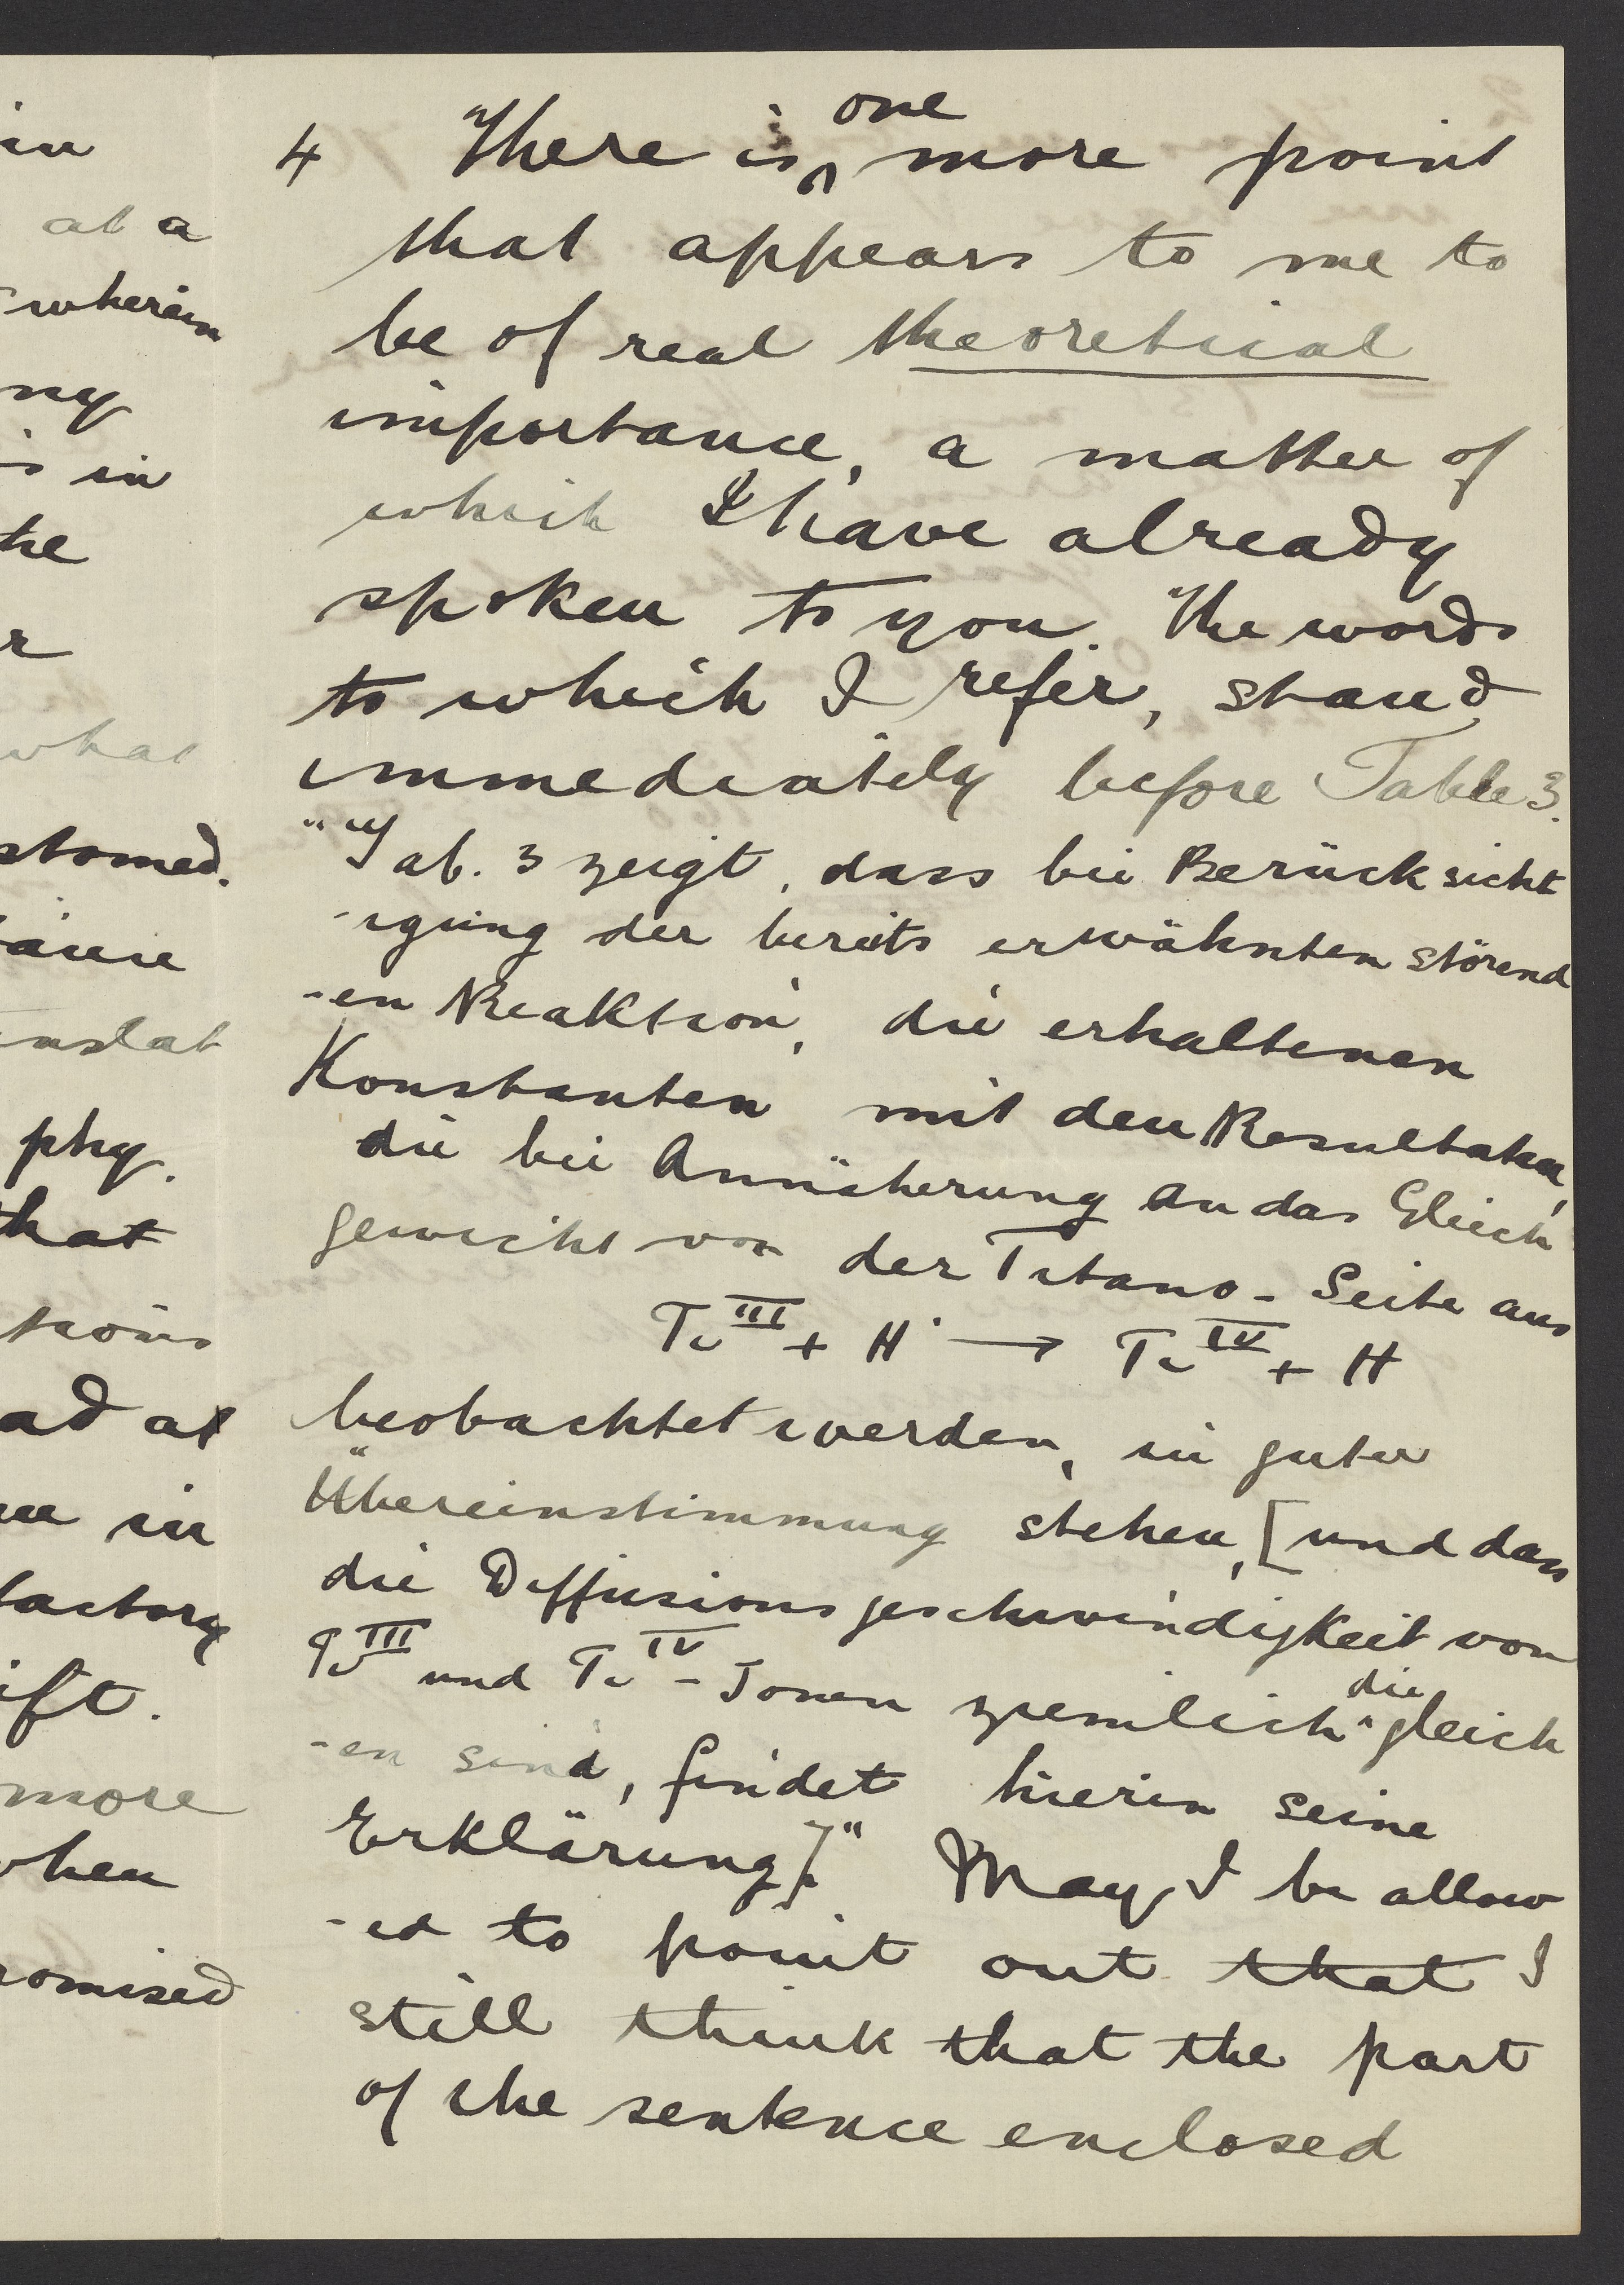 in
at a
wherein
ny
in
he
r
what
stomed.
enstat
phy.
that
tions
ad at
in
factory
ift.
more
when
romised
4 There is one more point
that appears to me to
be of real theoretical
importance, a matter of
which I have already
spoken to you. The words
to which I refer, stand
immediately before Table 3.
"Tab. 3 zeigt, dass bei Berücksicht
-igung der bereits erwähnten störend
-en Reaktion, die erhaltenen
Konstanten mit den Resultaten,
die bei Annäherung an das Gleich
gewicht von der Titano-Seite aus
Ti III + H˙ → Ti IV + H
beobachtet werden, in guter
Übereinstimmung stehen, [und dass
die Diffusionsgeschwindigkeit von
Ti III und Ti IV - Ionen ziemlich die gleich
-en sind, findet hierin seine
Erklärung]." May I be allow
-ed to point out that I
still think that the part
of the sentence enclosed